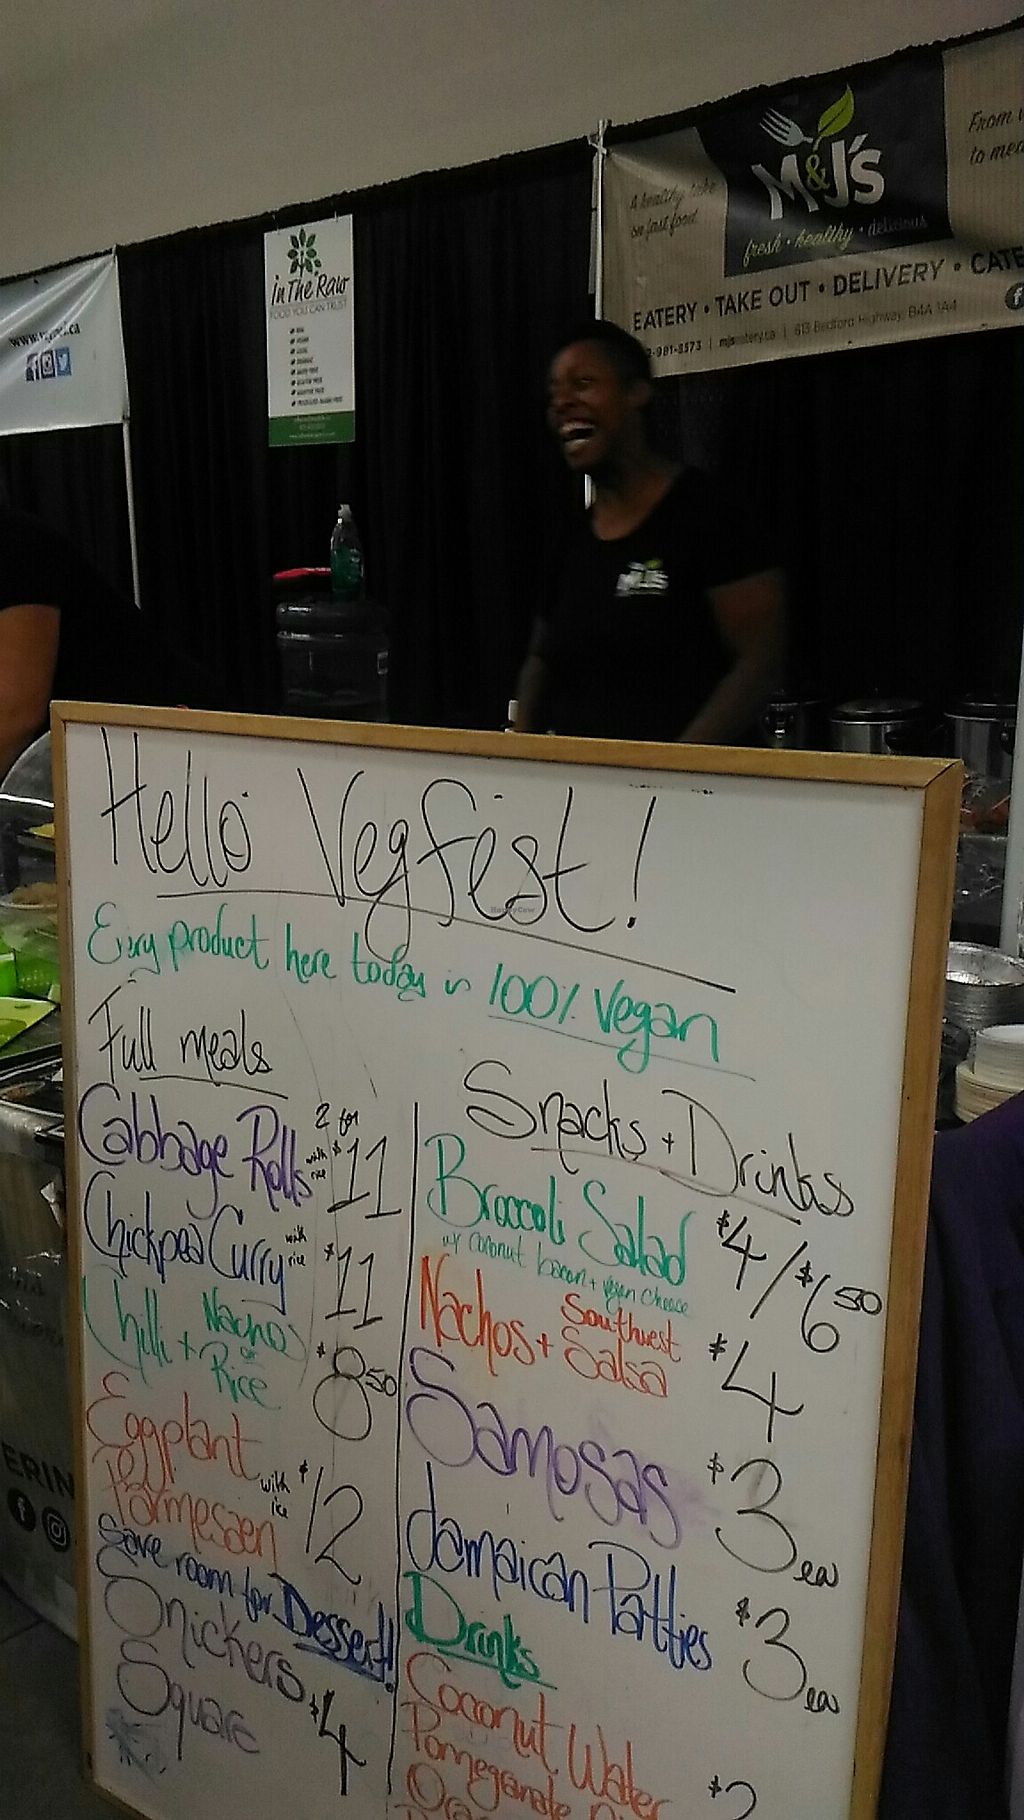 From
to mea
M&J's
A healthy take
on fast food.
fresh · healthy · delicious
EATERY · TAKE OUT · DELIVERY · CATE
-981-8573 | mjseatery.ca | 613 Bedford Highway, B4A 1A4
in The Raw
FOOD YOU CAN TRUST
M&J's
Hello Vegfest!
Every product here today is 100% Vegan
Full meals
Cabbage Rolls with rice 2 for $11
Chickpea Curry with rice $11
Chilli + Nachos or Rice $8.50
Eggplant
Parmesaen with rice $12
Save room for Dessert!
Snickers
Square $4
Snacks + Drinks
Broccoli Salad $4/$6.50
w/ coconut bacon + vegan cheese
Nachos + Southwest Salsa $4
Samosas $3 ea
Jamaican Patties $3 ea
Drinks
Coconut Water
Pomegranate
ERIN
HappyCow